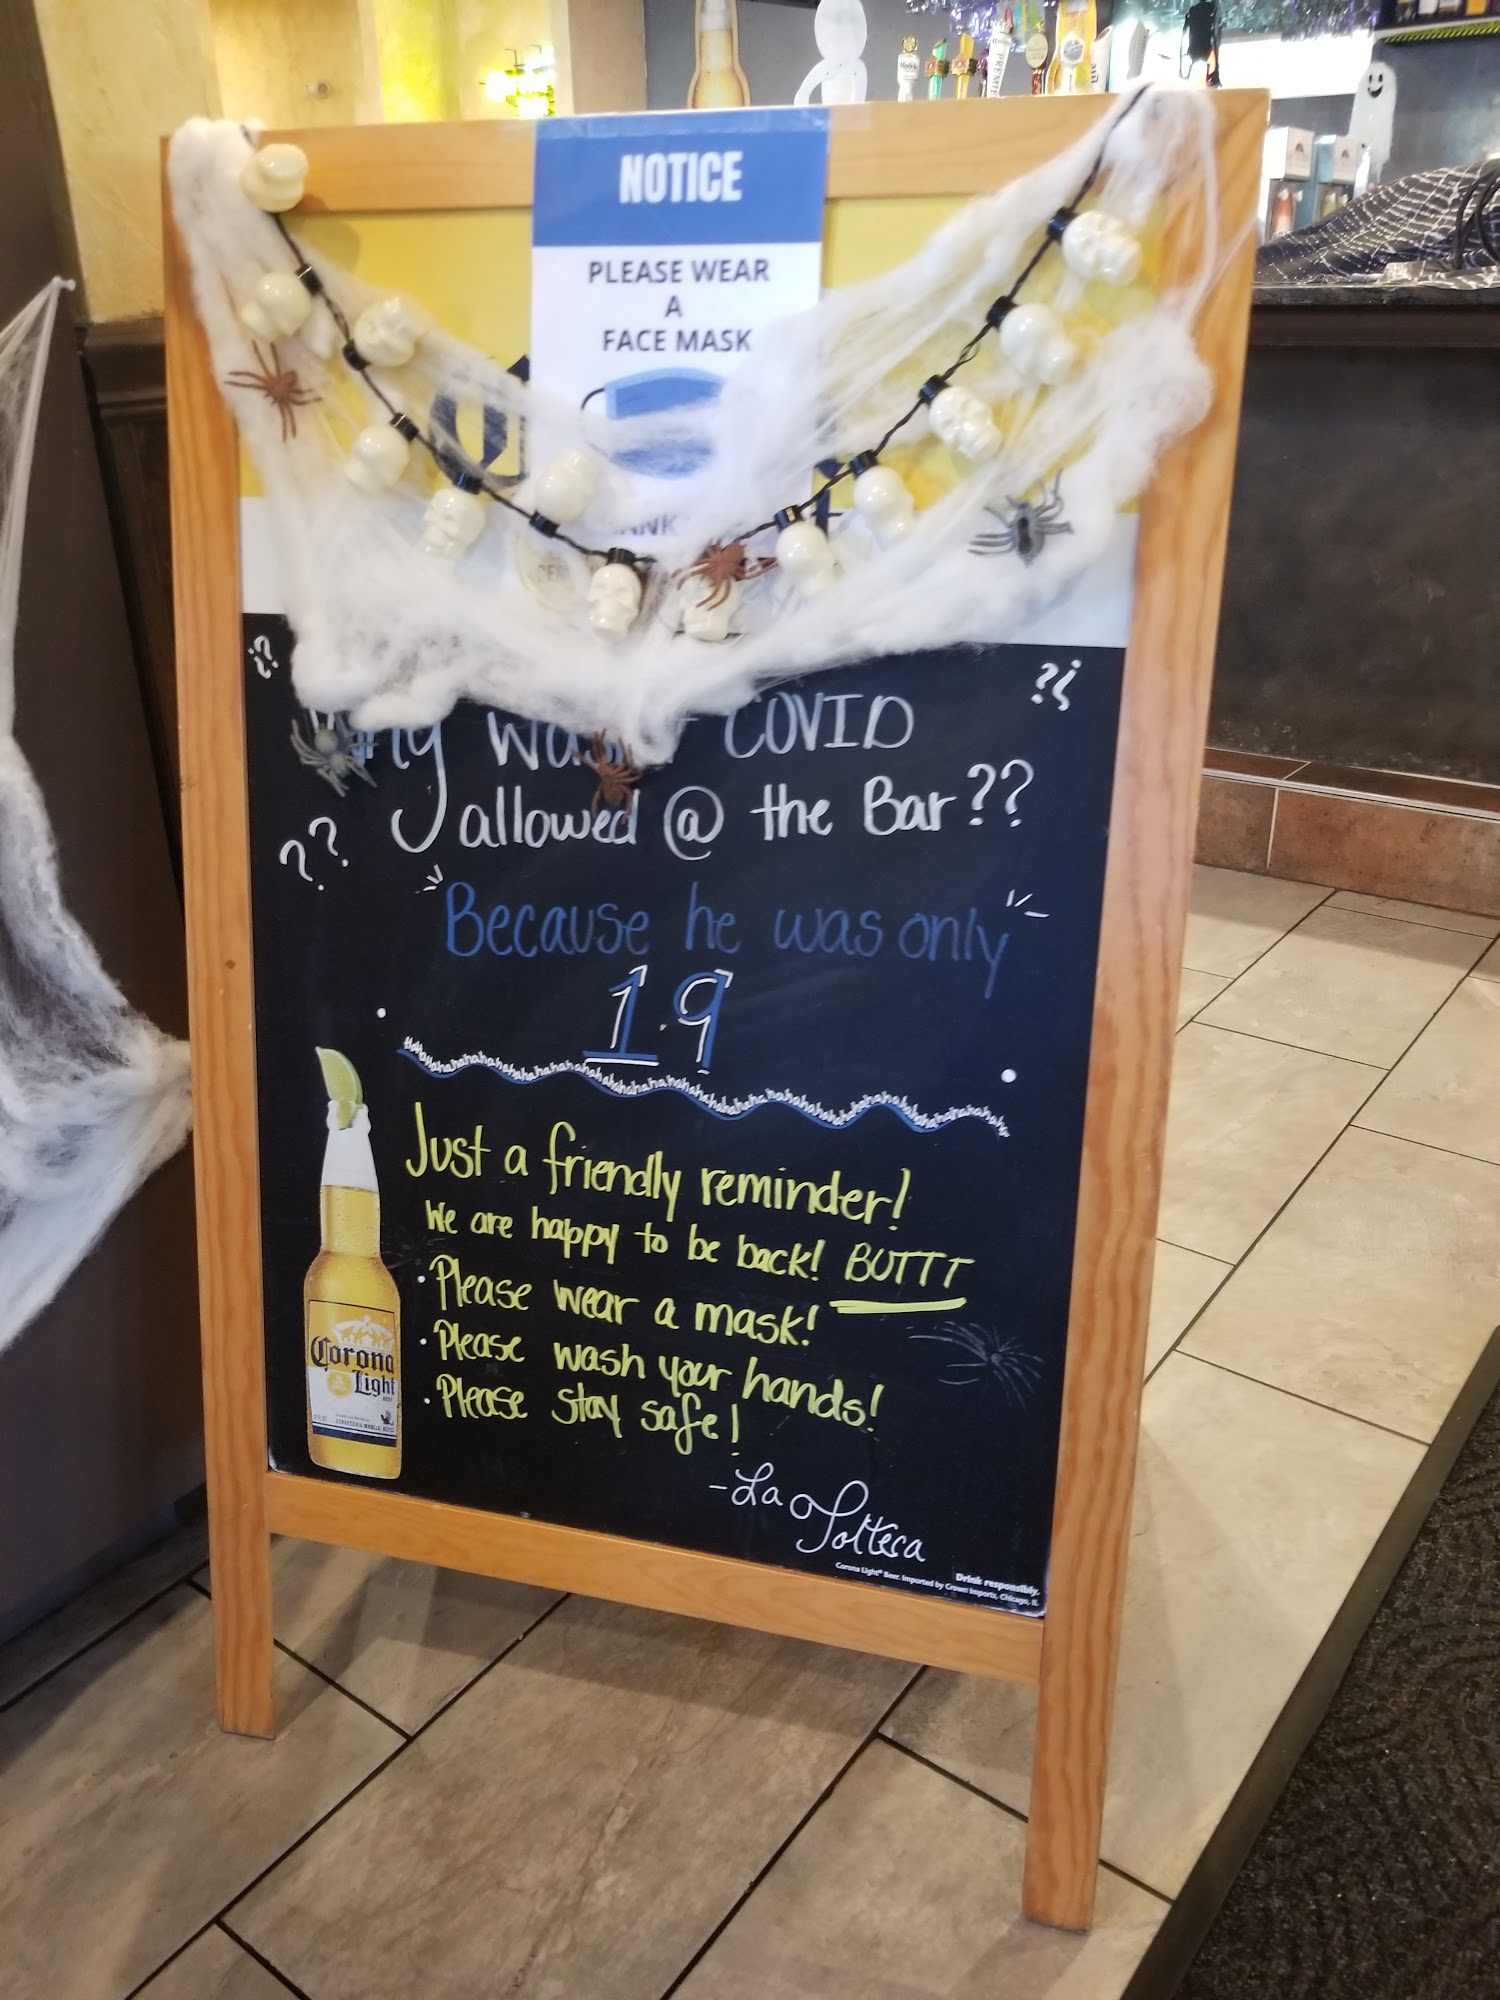 NOTICE
PLEASE WEAR
A
FACE MASK
?? ??
COVID
allowed @ the Bar??
??
Because he was only
19
Hahahahahahahahahahahahahahahahahahahahahahahahahahahahaha
Just a friendly reminder!
We are happy to be back! BUTTT
• Please wear a mask!
• Please wash your hands!
• Please stay safe!
Corona
Light
BEER
-La Tolteca
Drink responsibly.
Corona Light® Beer. Imported by Crown Imports, Chicago, IL